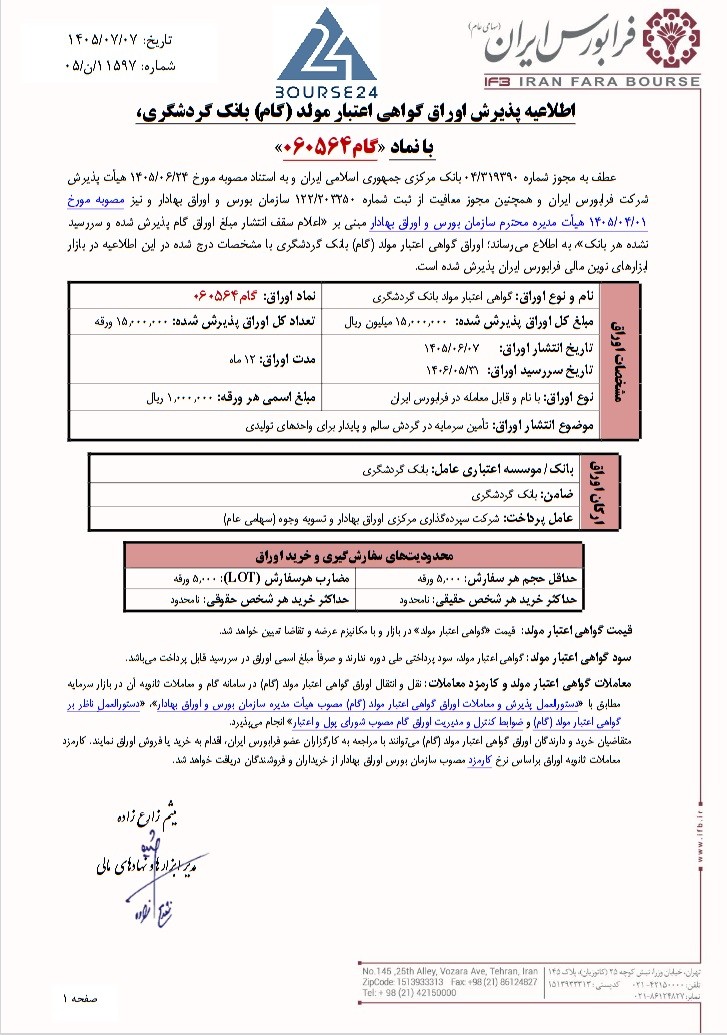 فرابورس ایران (سهامی عام)
IFB IRAN FARA BOURSE
BOURSE24
تاریخ: ۱۴۰۵/۰۷/۰۷
شماره: ۱۱۵۹۷/ن/۰۵
اطلاعیه پذیرش اوراق گواهی اعتبار مولد (گام) بانک گردشگری،
با نماد «گام۰۶۰۵۶۴»
عطف به مجوز شماره ۰۴/۳۱۹۳۹۰ بانک مرکزی جمهوری اسلامی ایران و به استناد مصوبه مورخ ۱۴۰۵/۰۶/۲۴ هیأت پذیرش
شرکت فرابورس ایران و همچنین مجوز معافیت از ثبت شماره ۱۲۲/۲۰۳۲۵۰ سازمان بورس و اوراق بهادار و نیز مصوبه مورخ
۱۴۰۵/۰۴/۰۱ هیأت مدیره محترم سازمان بورس و اوراق بهادار مبنی بر «اعلام سقف انتشار مبلغ اوراق گام پذیرش شده و سررسید
نشده هر بانک»، به اطلاع می‌رساند؛ اوراق گواهی اعتبار مولد (گام) بانک گردشگری با مشخصات درج شده در این اطلاعیه در بازار
ابزارهای نوین مالی فرابورس ایران پذیرش شده است.
مشخصات اوراق
نام و نوع اوراق: گواهی اعتبار مولد بانک گردشگری
نماد اوراق: گام۰۶۰۵۶۴
مبلغ کل اوراق پذیرش شده: ۱۵,۰۰۰,۰۰۰ میلیون ریال
تعداد کل اوراق پذیرش شده: ۱۵,۰۰۰,۰۰۰ ورقه
تاریخ انتشار اوراق: ۱۴۰۵/۰۶/۰۷
تاریخ سررسید اوراق: ۱۴۰۶/۰۵/۳۱
مدت اوراق: ۱۲ ماه
نوع اوراق: با نام و قابل معامله در فرابورس ایران
مبلغ اسمی هر ورقه: ۱,۰۰۰,۰۰۰ ریال
موضوع انتشار اوراق: تأمین سرمایه در گردش سالم و پایدار برای واحدهای تولیدی
ارکان اوراق
بانک/موسسه اعتباری عامل: بانک گردشگری
ضامن: بانک گردشگری
عامل پرداخت: شرکت سپرده‌گذاری مرکزی اوراق بهادار و تسویه وجوه (سهامی عام)
محدودیت‌های سفارش‌گیری و خرید اوراق
حداقل حجم هر سفارش: ۵,۰۰۰ ورقه
مضارب هرسفارش (LOT): ۵,۰۰۰ ورقه
حداکثر خرید هر شخص حقیقی: نامحدود
حداکثر خرید هر شخص حقوقی: نامحدود
قیمت گواهی اعتبار مولد: قیمت «گواهی اعتبار مولد» در بازار و با مکانیزم عرضه و تقاضا تعیین خواهد شد.
سود گواهی اعتبار مولد: گواهی اعتبار مولد، سود پرداختی طی دوره ندارند و صرفاً مبلغ اسمی اوراق در سررسید قابل پرداخت می‌باشد.
معاملات گواهی اعتبار مولد و کارمزد معاملات: نقل و انتقال اوراق گواهی اعتبار مولد (گام) در سامانه گام و معاملات ثانویه آن در بازار سرمایه
مطابق با «دستورالعمل پذیرش و معاملات اوراق گواهی اعتبار مولد (گام) مصوب هیأت مدیره سازمان بورس و اوراق بهادار»، «دستورالعمل ناظر بر
گواهی اعتبار مولد (گام) و ضوابط کنترل و مدیریت اوراق گام مصوب شورای پول و اعتبار» انجام می‌پذیرد.
متقاضیان خرید و دارندگان اوراق گواهی اعتبار مولد (گام) می‌توانند با مراجعه به کارگزاران عضو فرابورس ایران، اقدام به خرید یا فروش اوراق نمایند. کارمزد
معاملات ثانویه اوراق براساس نرخ کارمزد مصوب سازمان بورس اوراق بهادار از خریداران و فروشندگان دریافت خواهد شد.
میثم زارع زاده
مدیر ابزارها و نهادهای مالی
www.ifb.ir
No.145 ,25th Alley, Vozara Ave, Tehran, Iran
ZipCode: 1513933313 Fax: +98 (21) 86124827
Tel: + 98 (21) 42150000
تهران، خیابان وزرا، نبش کوچه ۲۵ (کاتوزیان)، پلاک ۱۴۵
تلفن: ۴۲۱۵۰۰۰۰-۰۲۱ کدپستی: ۱۵۱۳۹۳۳۳۱۳
نمابر: ۸۶۱۲۴۸۲۷-۰۲۱
صفحه ۱